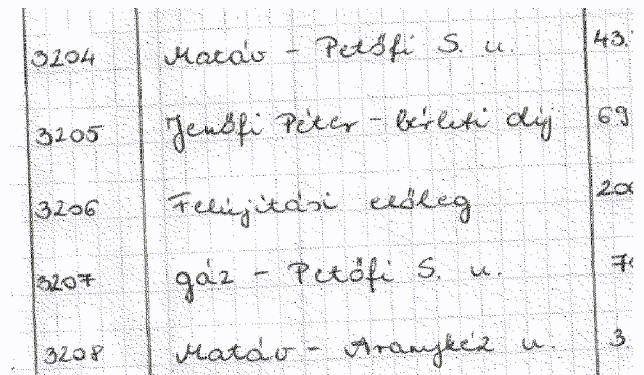 3204 Matáv - Petőfi S. u. 43.
3205 Jenőfi Péter - bérleti díj 69
3206 Felújítási előleg 200
3207 gáz - Petőfi S. u.
3208 Matáv - Aranykéz u. 3